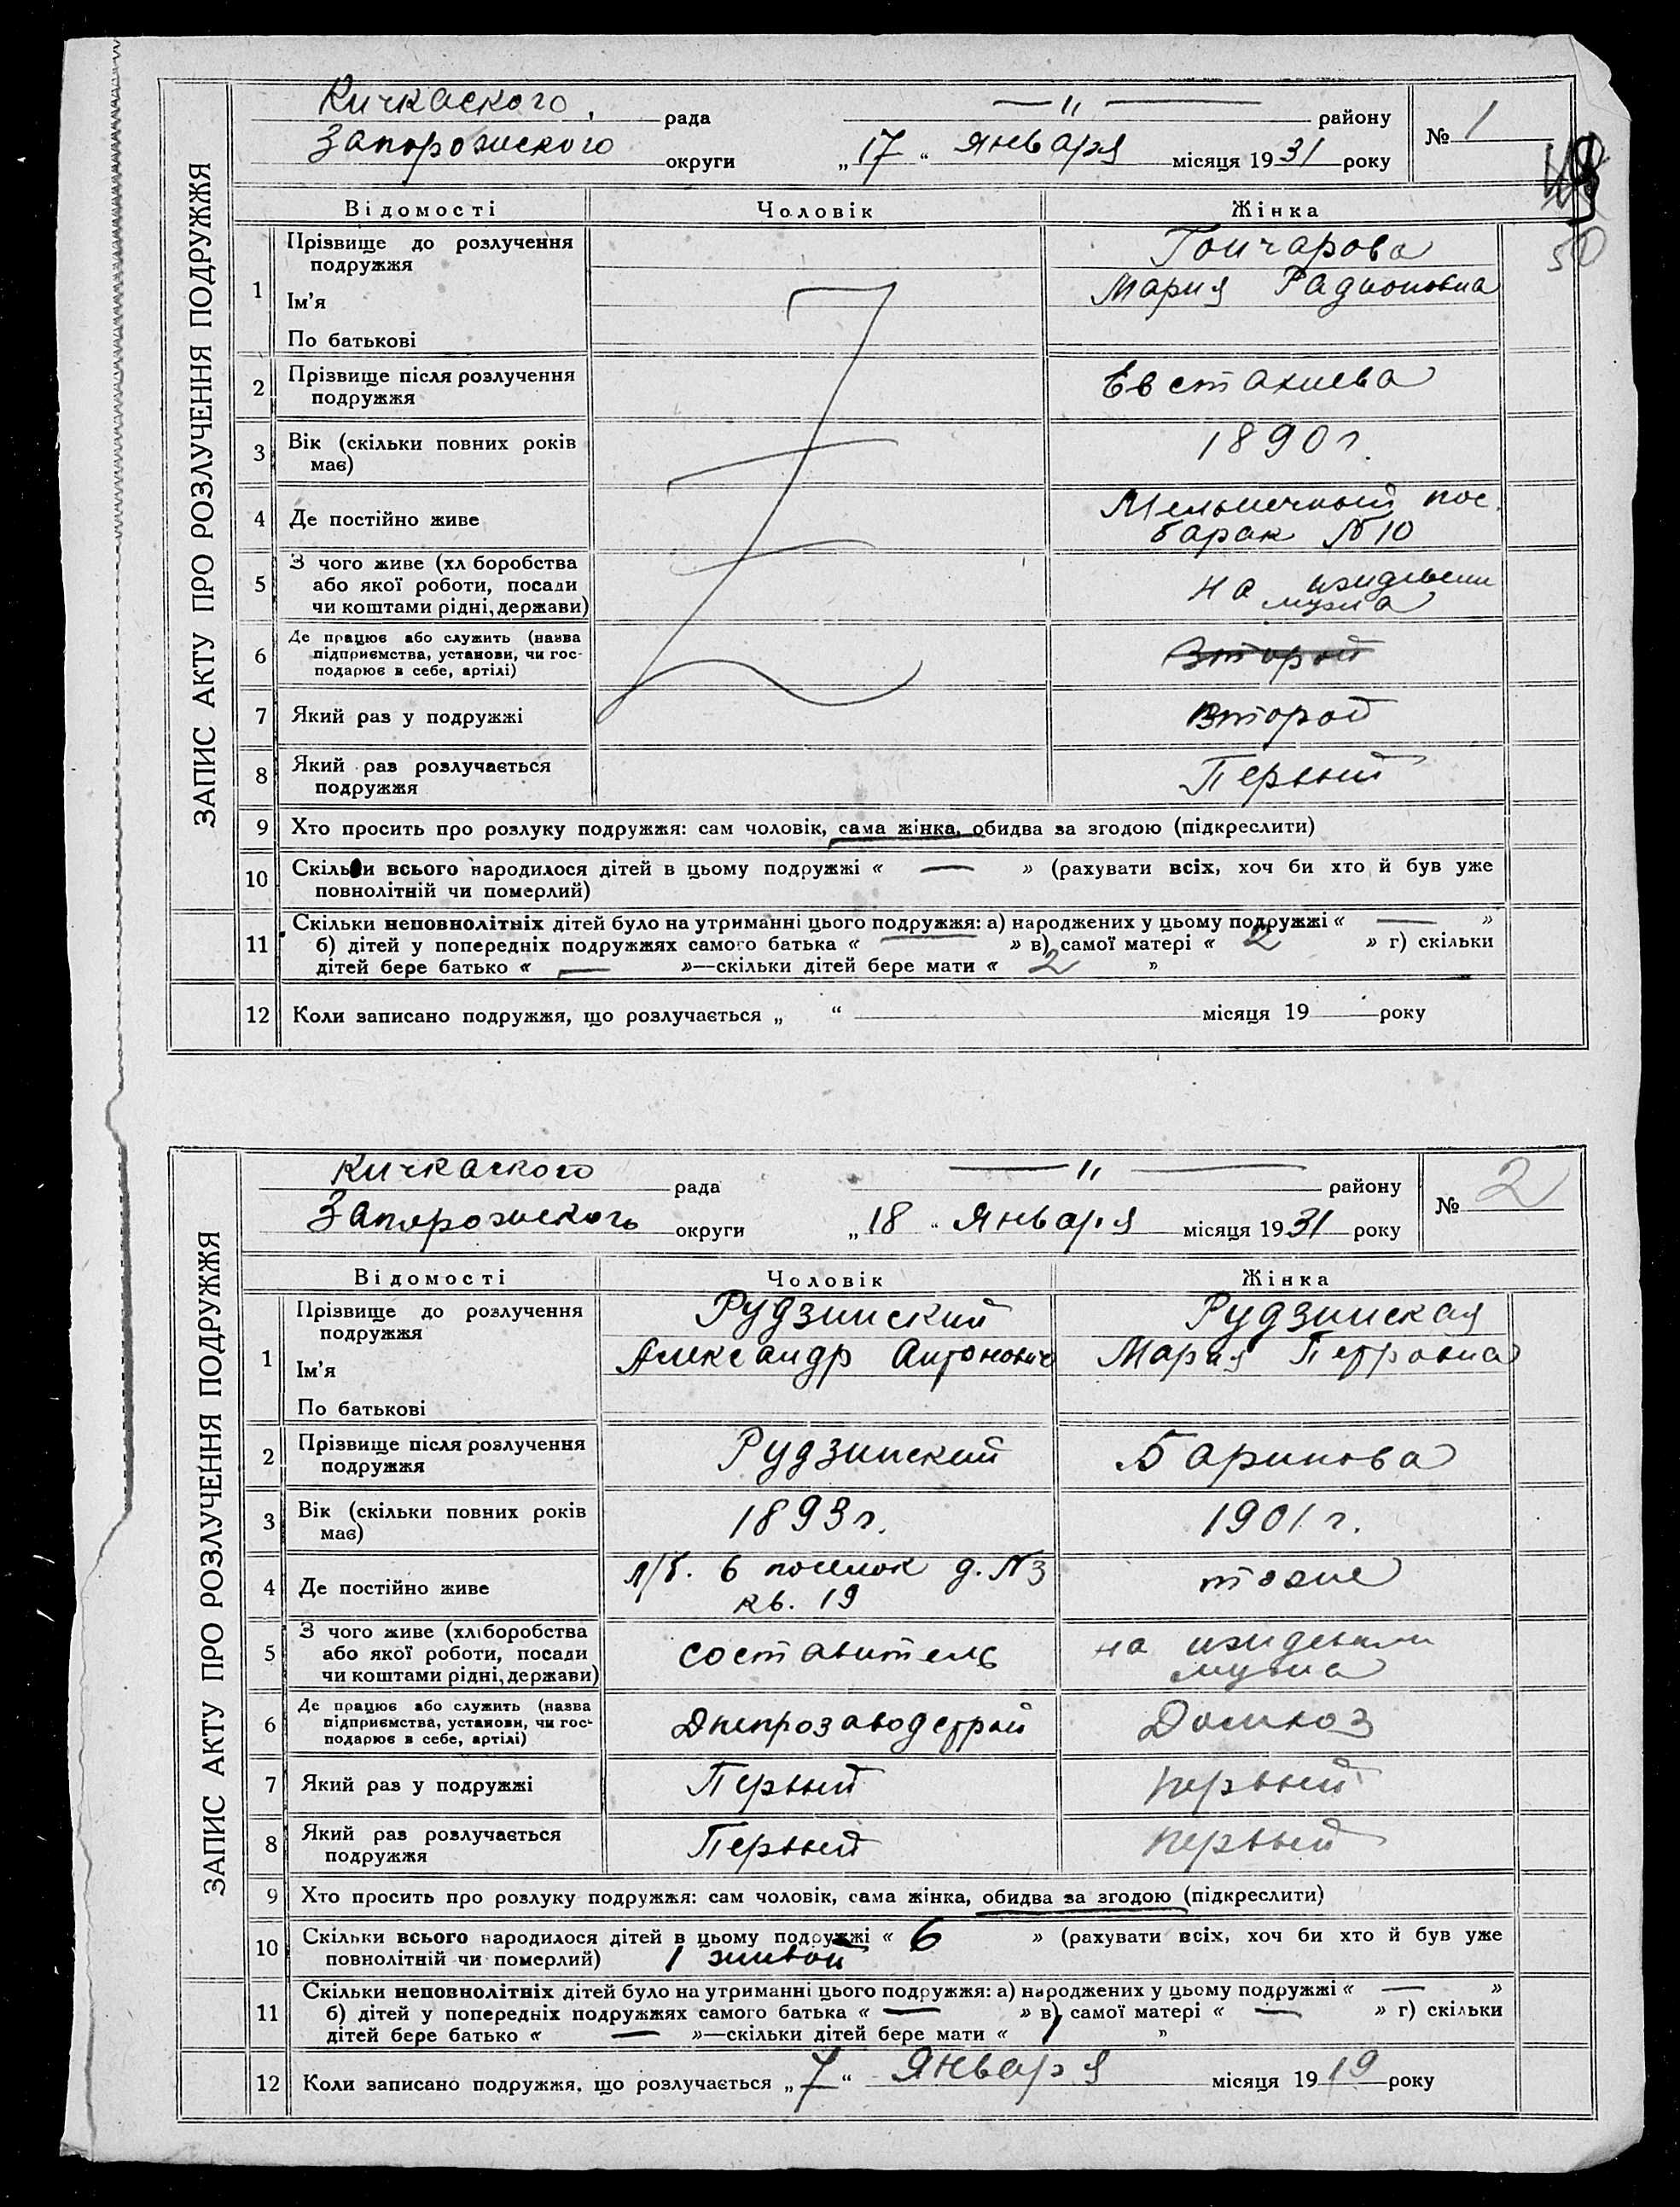 ЗАПИС АКТУ ПРО РОЗЛУЧЕННЯ ПОДРУЖЖЯ
Кичкаского рада —"— району № 1
Запорожского округи „17“ января місяця 1931 року
50
Відомості Чоловік Жінка
1 Прізвище до розлучення подружжя Гончарова
Ім'я Мария Радионовна
По батькові
2 Прізвище після розлучення подружжя Евстахиева
3 Вік (скільки повних років має) 1890 г.
4 Де постійно живе Мельничный пос.
барак №10
5 З чого живе (хл боробства або якої роботи, посади чи коштами рідні, держави) на иждевении
мужа
6 Де працює або служить (назва підприємства, установи, чи господарює в себе, артілі) Второй
7 Який раз у подружжі Второй
8 Який раз розлучається подружжя Первый
9 Хто просить про розлуку подружжя: сам чоловік, сама жінка, обидва за згодою (підкреслити)
10 Скільки всього народилося дітей в цьому подружжі « — » (рахувати всіх, хоч би хто й був уже
повнолітній чи померлий)
11 Скільки неповнолітніх дітей було на утриманні цього подружжя: а) народжених у цьому подружжі « — »
б) дітей у попередніх подружжях самого батька « — » в) самої матері « 2 » г) скільки
дітей бере батько « — »—скільки дітей бере мати « 2 »
12 Коли записано подружжя, що розлучається „ “ місяця 19 року
ЗАПИС АКТУ ПРО РОЗЛУЧЕННЯ ПОДРУЖЖЯ
Кичкаского рада —"— району № 2
Запорожского округи „18“ Января місяця 1931 року
Відомості Чоловік Жінка
1 Прізвище до розлучення подружжя Рудзинский Рудзинская
Ім'я Александр Антонович Мария Петровна
По батькові
2 Прізвище після розлучення подружжя Рудзинский Баринова
3 Вік (скільки повних років має) 1893 г. 1901 г.
4 Де постійно живе л/б. 6 поселок д. №3 тоже
кв. 19
5 З чого живе (хліборобства або якої роботи, посади чи коштами рідні, держави) составитель на иждевении
мужа
6 Де працює або служить (назва підприємства, установи, чи господарює в себе, артілі) Днепрозаводстрой Домхоз
7 Який раз у подружжі Первый первый
8 Який раз розлучається подружжя Первый первый
9 Хто просить про розлуку подружжя: сам чоловік, сама жінка, обидва за згодою (підкреслити)
10 Скільки всього народилося дітей в цьому подружжі « 6 » (рахувати всіх, хоч би хто й був уже
повнолітній чи померлий) 1 живой
11 Скільки неповнолітніх дітей було на утриманні цього подружжя: а) народжених у цьому подружжі « — »
б) дітей у попередніх подружжях самого батька « — » в) самої матері « — » г) скільки
дітей бере батько « — »—скільки дітей бере мати « 1 »
12 Коли записано подружжя, що розлучається „7“ Января місяця 1919 року